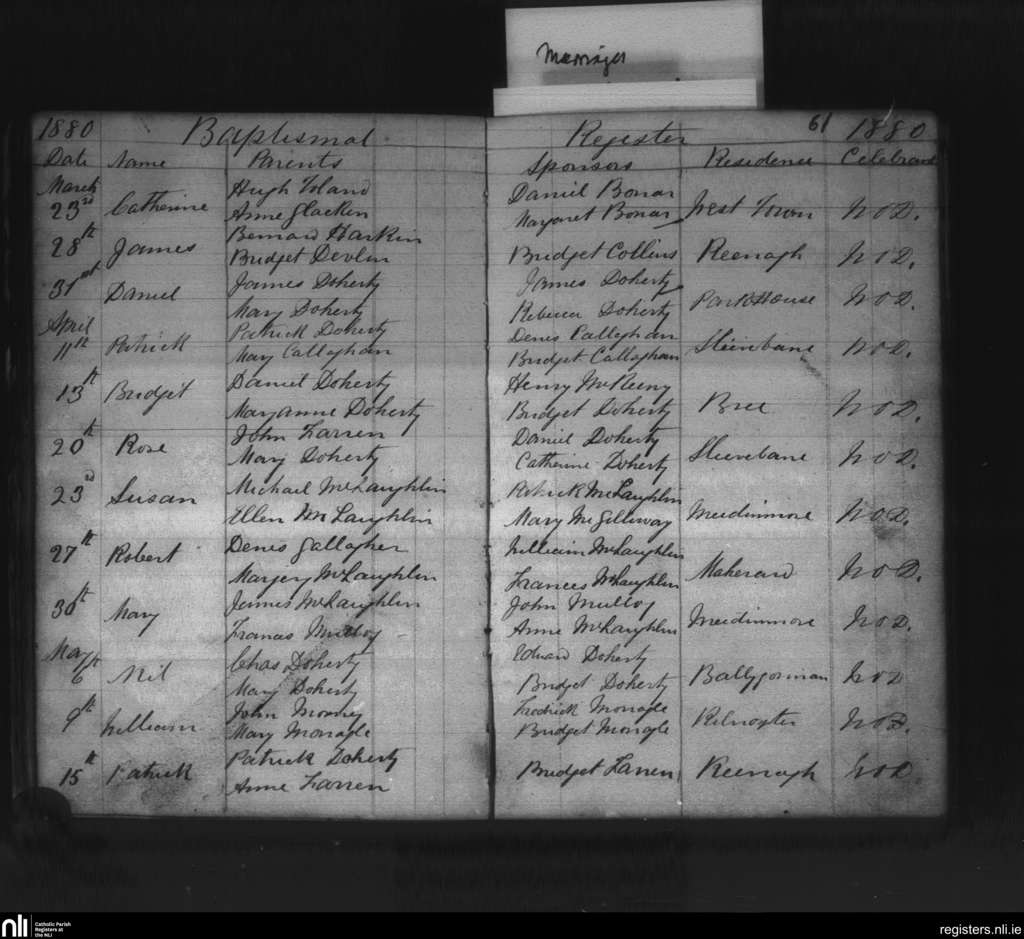 Marriages
1880 Baptismal Register 61 1880
Date Name Parents Sponsors Residence Celebrant
March Hugh Toland Daniel Bonar
23rd Catherine Anne Glacken Margaret Bonar West Town W O D.
28th James Bernard Harkin
Bridget Devlin Bridget Collins Keenagh W O D.
31st Daniel James Doherty James Doherty
Mary Doherty Rebecca Doherty ParkHouse W O D.
April Patrick Doherty Denis Callaghan
11th Patrick Mary Callaghan Bridget Callaghan Slievebane W O D.
13th Bridget Daniel Doherty Henry McKeeny
Maryanne Doherty Bridget Doherty Bree W O D.
20th Rose John Farren Daniel Doherty
Mary Doherty Catherine Doherty Slievebane W O D.
23rd Susan Michael McLaughlin Patrick McLaughlin
Ellen McLaughlin Mary McGilloway Meedinmore W O D.
27th Robert Denis Gallagher William McLaughlin
Margery McLaughlin Frances McLaughlin W O D.
30th Mary James McLaughlin John Mulloy
Frances Mulloy Anne McLaughlin Meedinmore W O D.
May Chas Doherty Edward Doherty
6th Nil Mary Doherty Bridget Doherty Ballygorman W O D
9th William John Mary Monagle Fredrick Monagle
Bridget Monagle W O D.
15th Patrick Patrick Doherty
Anne Farren Bridget Farren Keenagh W O D
nli Catholic Parish Registers at the NLI
registers.nli.ie